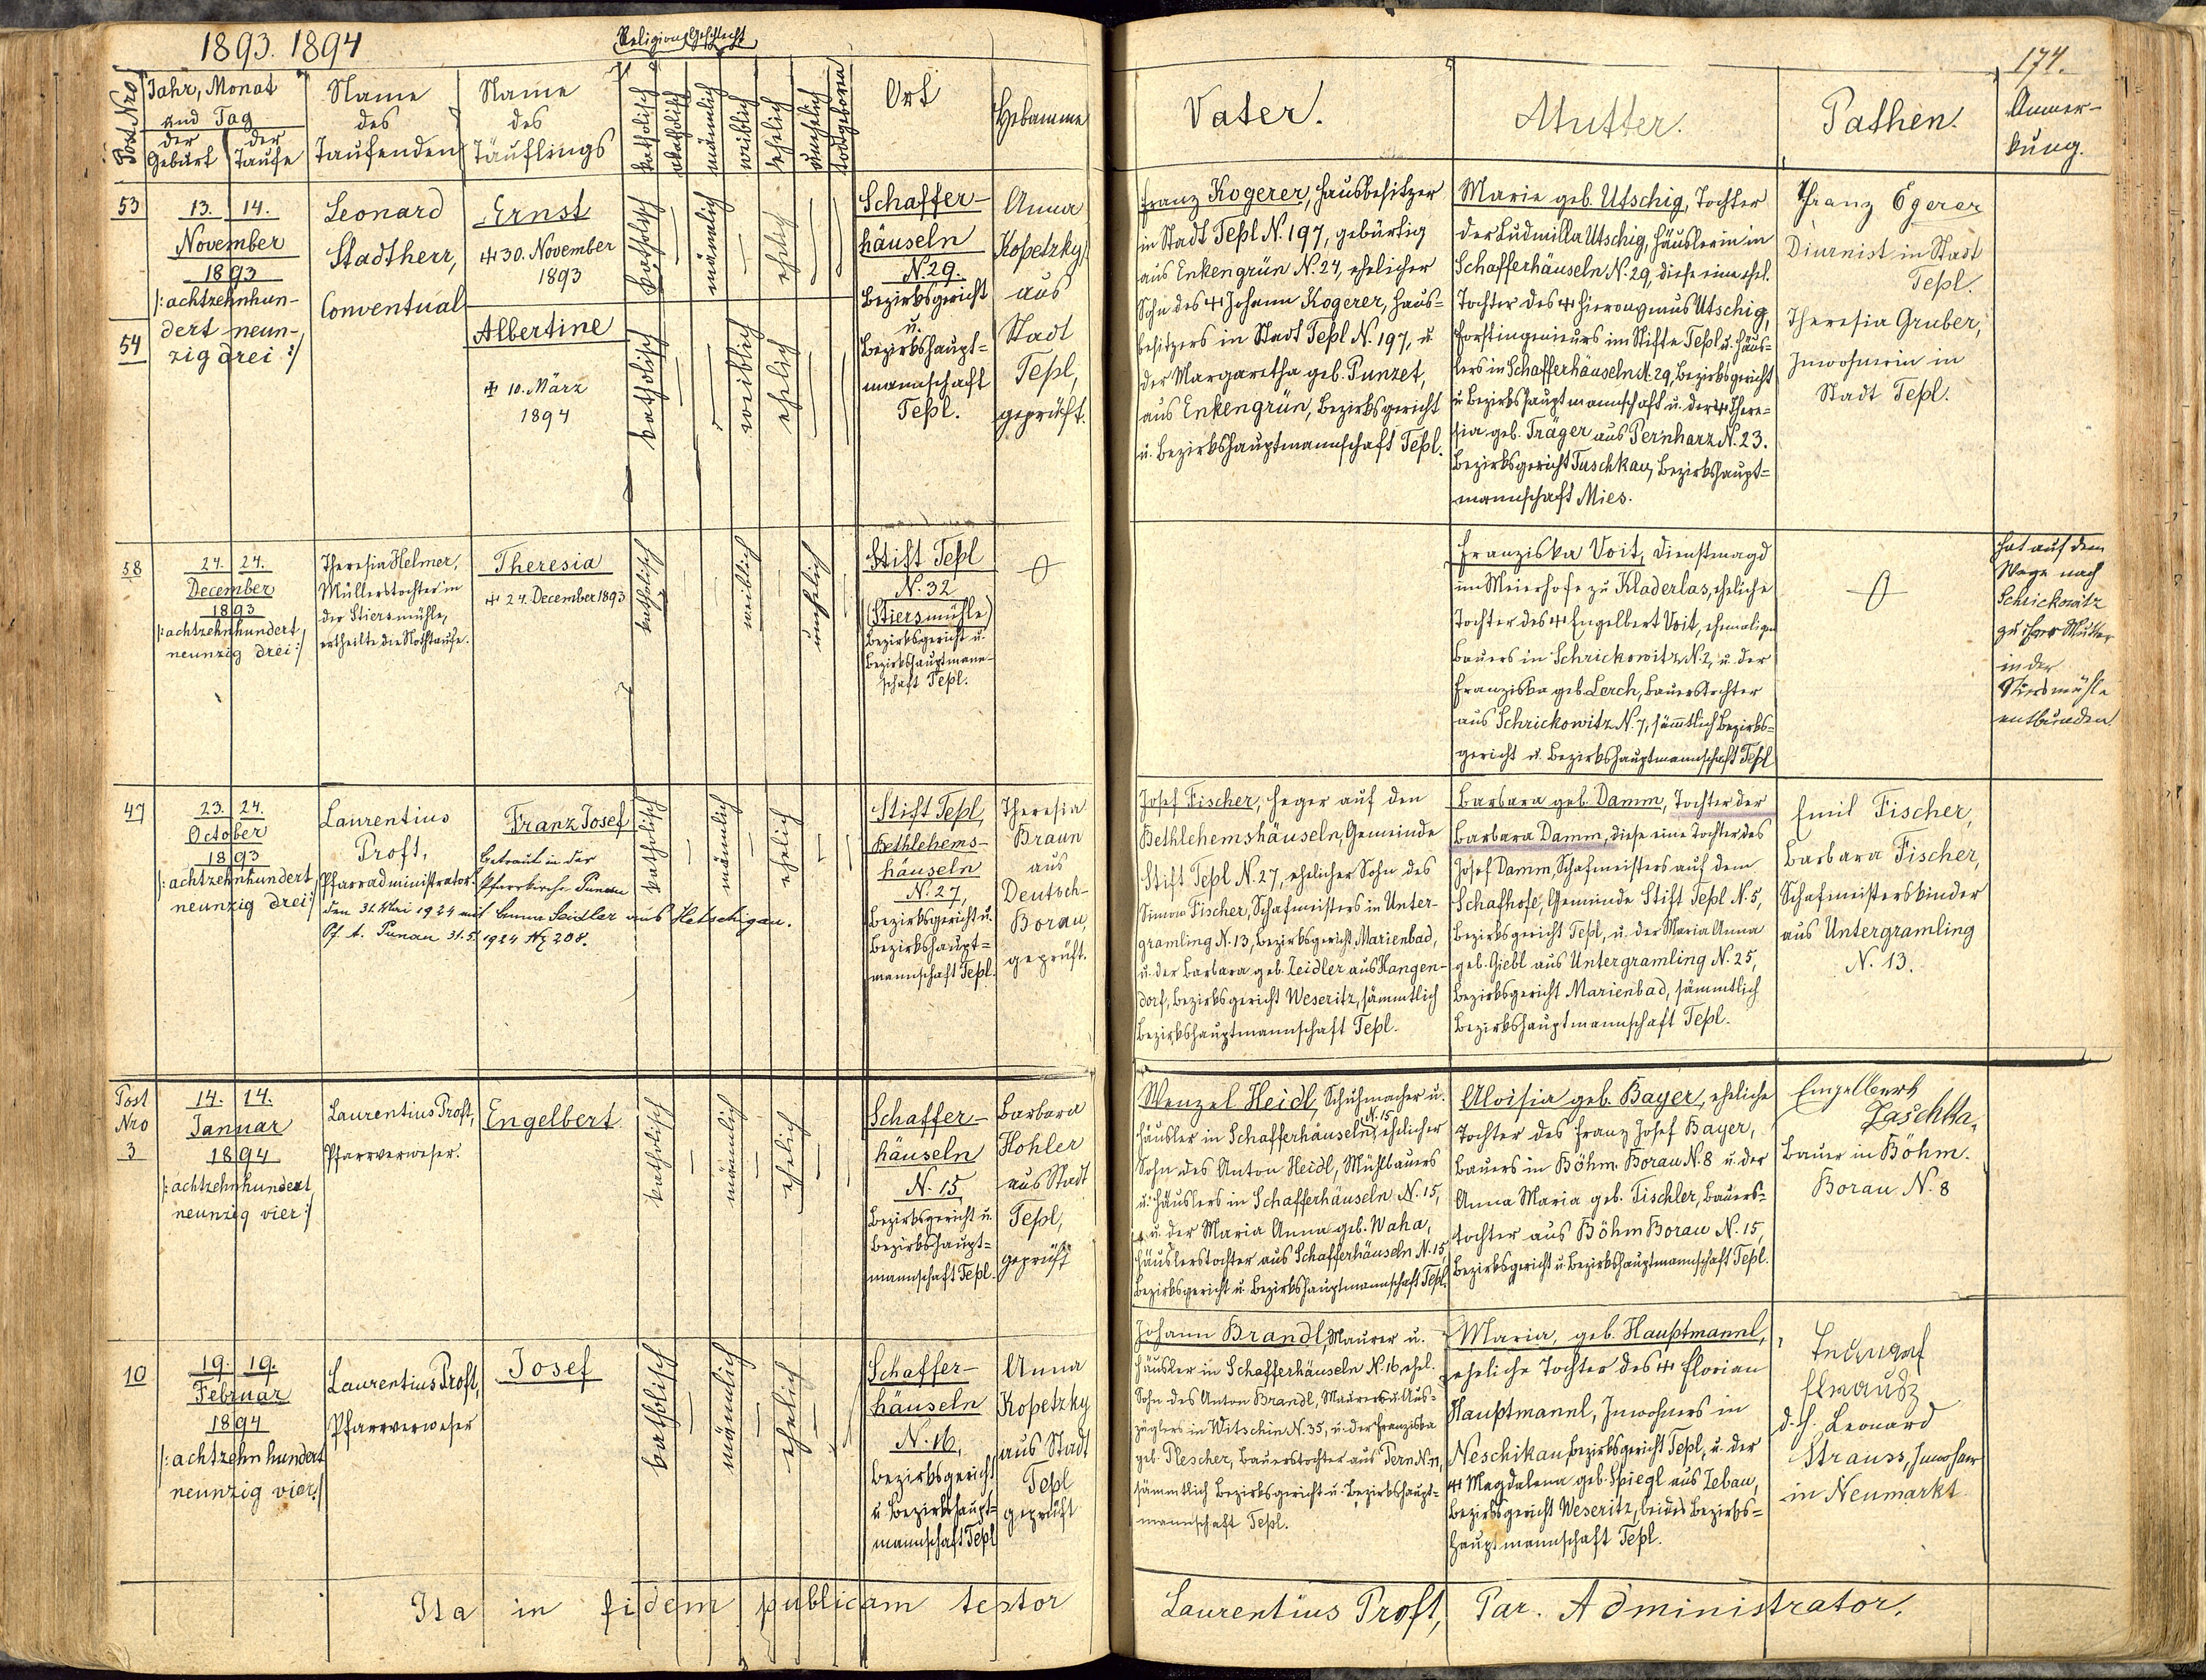 1893. 1894
Religion Geschlecht
174.
Post Nro
Jahr, Monat
und Tag
der Geburt
der Taufe
Name
des
Taufenden
Name
des
Täuflings
katholisch
akatholisch
männlich
weiblich
ehelich
unehelich
todtgeboren
Ort
Hebamme
Vater.
Mutter.
Pathen.
Anmer-
kung.
53
54
13. 14.
November
1893
/: achtzehnhun-
dert neun-
zig drei :/
Leonard
Stadtherr,
Conventual
Ernst
☩ 30. November
1893
Albertine
☩ 10. März
1894
katholisch
männlich
ehelich
katholisch
weiblich
ehelich
Schaffer-
häuseln
N. 29.
Bezirksgericht
u.
Bezirkshaupt=
mannschaft
Tepl.
Anna
Kopetzky
aus
Stadt
Tepl,
geprüft.
Franz Kogerer, Hausbesitzer
in Stadt Tepl N. 197, gebürtig
aus Enkengrün N. 24, ehelicher
Sohn des ☩ Johann Kogerer, Haus=
besitzers in Stadt Tepl N. 197, u.
der Margaretha geb. Punzet,
aus Enkengrün, Bezirksgericht
u. Bezirkshauptmannschaft Tepl.
Marie geb. Utschig, Tochter
der Ludmilla Utschig, Häuslerin in
Schafferhäuseln N. 29, diese eine ehel.
Tochter des ☩ Hieronymus Utschig,
Forstingenieurs im Stifte Tepl u. Häus=
lers in Schafferhäuseln N. 29, Bezirksgericht
u. Bezirkshauptmannschaft u. der ☩ There=
sia geb. Träger aus Pernharz N. 23.
Bezirksgericht Tuschkau, Bezirkshaupt=
mannschaft Mies.
Franz Egerer
Diurnist in Stadt
Tepl.
Theresia Gruber,
Inwohnerin in
Stadt Tepl.
58
24. 24.
December
1893
/: achtzehnhundert
neunzig drei :/
Theresia Helmer,
Müllerstochter in
der Stiersmühle,
ertheilte die Nothtaufe.
Theresia
☩ 24. December 1893
katholisch
weiblich
unehelich
Stift Tepl
N. 32
(Stiersmühle)
Bezirksgericht u.
Bezirkshauptmann-
schaft Tepl.
Franziska Voit, Dienstmagd
im Meierhofe zu Kladerlas, eheliche
Tochter des ☩ Engelbert Voit, ehemaligen
Bauers in Schrickowitz N. 2, u. der
Franziska geb. Lerch, Bauerstochter
aus Schrickowitz N. 7, sämmtlich Bezirks=
gericht u. Bezirkshauptmannschaft Tepl
hat auf dem
Wege nach
Schrickowitz
zu ihrer Mutter
in der
Stiersmühle
entbunden.
47
23. 24.
October
1893
/: achtzehnhundert
neunzig drei :/
Laurentius
Proft,
Pfarradministrator.
Franz Josef
Getraut in der
Pfarrkirche Punau
den 31. Mai 1924 mit Emma Seidler aus Hetschigau.
Pf. A. Punau 31.5. 1924 Nz 208.
katholisch
männlich
ehelich
Stift Tepl,
Bethlehems-
häuseln
N. 27,
Bezirksgericht u.
Bezirkshaupt=
mannschaft Tepl.
Theresia
Braun
aus
Deutsch-
Borau,
geprüft.
Josef Fischer, Heger auf den
Bethlehemshäuseln, Gemeinde
Stift Tepl N. 27, ehelicher Sohn des
Simon Fischer, Schafmeisters in Unter-
gramling N. 13, Bezirksgericht Marienbad,
u. der Barbara geb. Zeidler aus Hangen-
dorf, Bezirksgericht Weseritz, sämmtlich
Bezirkshauptmannschaft Tepl.
Barbara geb. Damm, Tochter der
Barbara Damm, diese eine Tochter des
Josef Damm, Schafmeisters auf dem
Schafhofe, Gemeinde Stift Tepl N. 5,
Bezirksgericht Tepl, u. der Maria Anna
geb. Giebl aus Untergramling N. 25,
Bezirksgericht Marienbad, sämmtlich
Bezirkshauptmannschaft Tepl.
Emil Fischer,
Barbara Fischer,
Schafmeisterskinder
aus Untergramling
N. 13.
Post
Nro
3
14. 14.
Januar
1894
/: achtzehnhundert
neunzig vier :/
Laurentius Proft,
Pfarrverweser.
Engelbert
katholisch
männlich
ehelich
Schaffer-
häuseln
N. 15
Bezirksgericht u.
Bezirkshaupt=
mannschaft Tepl.
Barbara
Hohler
aus Stadt
Tepl,
geprüft
Wenzel Heidl, Schuhmacher u.
Häusler in Schafferhäuseln N. 15, ehelicher
Sohn des Anton Heidl, Mühlbauers
u. Häuslers in Schafferhäuseln N. 15,
u. der Maria Anna geb. Waha,
Häuslerstochter aus Schafferhäuseln N. 15,
Bezirksgericht u. Bezirkshauptmannschaft Tepl.
Aloisia geb. Bayer, eheliche
Tochter des Franz Josef Bayer,
Bauers in Böhm. Borau N. 8 u. der
Anna Maria geb. Tischler, Bauers=
tochter aus Böhm Borau N. 15,
Bezirksgericht u. Bezirkshauptmannschaft Tepl.
Engelbert
Laschka,
Bauer in Böhm.
Borau N. 8
10
19. 19.
Februar
1894
/: achtzehn hundert
neunzig vier :/
Laurentius Proft,
Pfarrverweser
Josef
katholisch
männlich
ehelich
Schaffer-
häuseln
N. 16,
Bezirksgericht
u. Bezirkshaupt=
mannschaft Tepl
Anna
Kopetzky
aus Stadt
Tepl
geprüft
Johann Brandl, Maurer u.
Häusler in Schafferhäuseln N. 16, ehel.
Sohn des Anton Brandl, Maurers u. Aus=
züglers in Witschin N. 35, u. der Franziska
geb. Plescher, Bauerstochter aus Pern N. 71,
sämmtlich Bezirksgericht u. Bezirkshaupt=
mannschaft Tepl.
Maria, geb. Hauptmannl,
eheliche Tochter des ☩ Florian
Hauptmannl, Inwohners in
Neschikau, Bezirksgericht Tepl, u. der
☩ Magdalena geb. Spiegl aus Zebau,
Bezirksgericht Weseritz, beides Bezirks=
hauptmannschaft Tepl.
d. h. Leonard
Strauss, Inwohner
in Neumarkt
Ita in fidem publicam testor
Laurentius Proft, Par. Administrator.